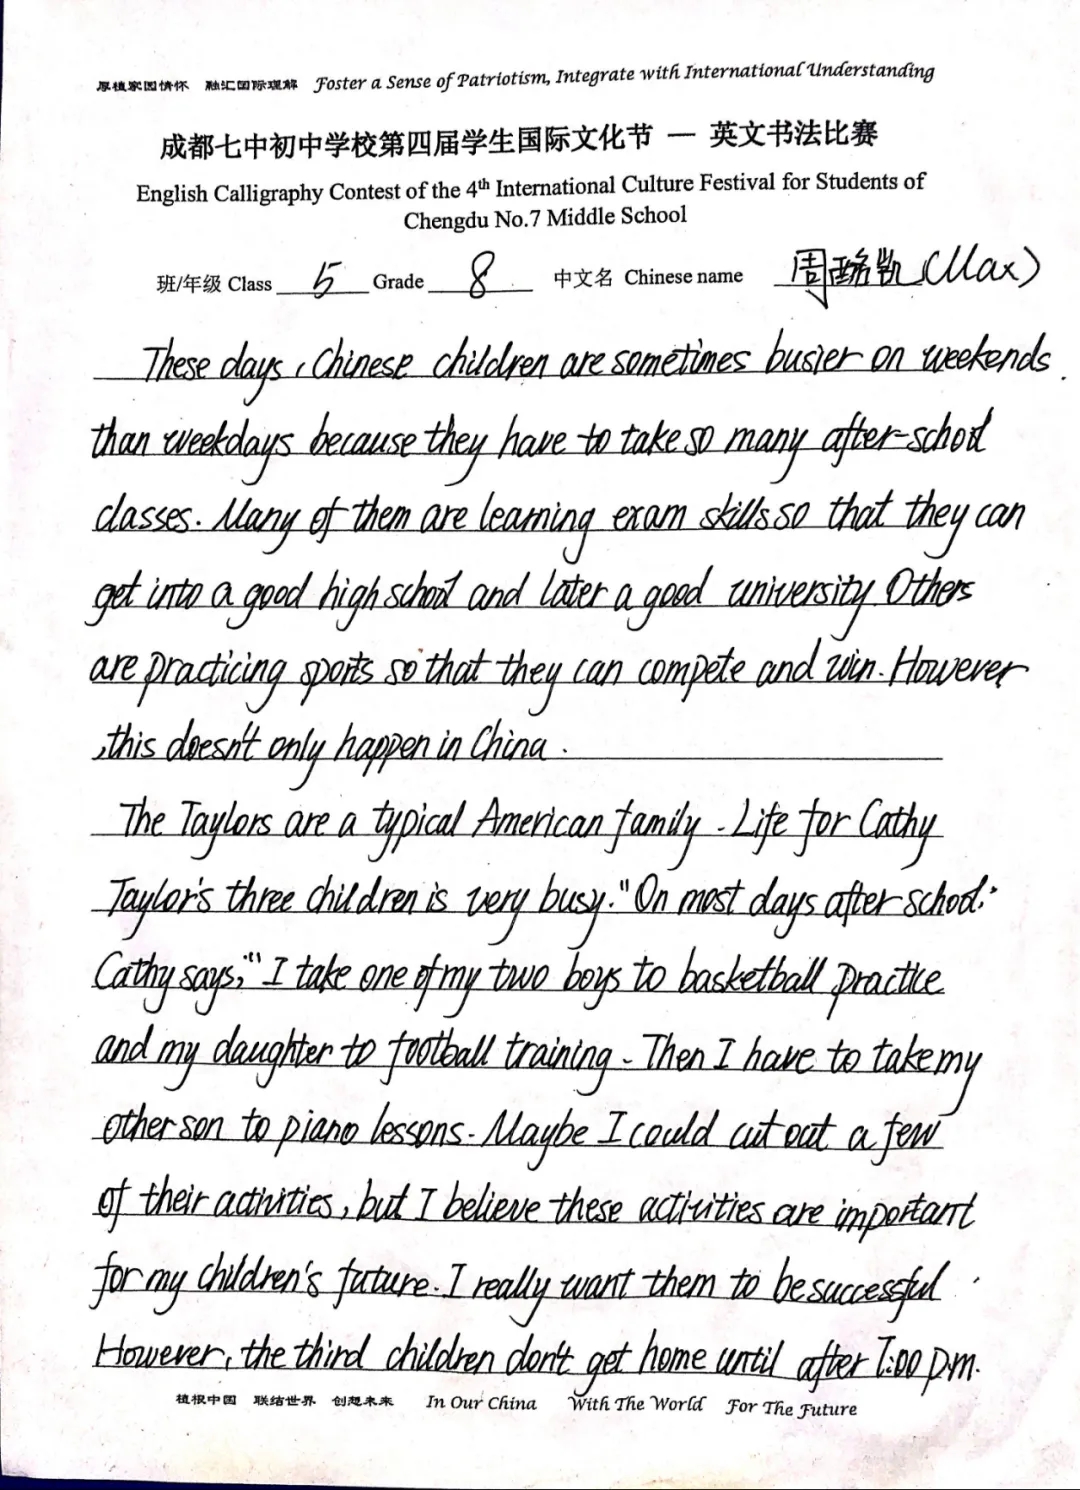 厚植家国情怀 融汇国际理解 Foster a Sense of Patriotism, Integrate with International Understanding
成都七中初中学校第四届学生国际文化节 — 英文书法比赛
English Calligraphy Contest of the 4th International Culture Festival for Students of
Chengdu No.7 Middle School
班/年级 Class 5 Grade 8 中文名 Chinese name 周璐凯 (Max)
These days, Chinese children are sometimes busier on weekends
than weekdays because they have to take so many after-school
classes. Many of them are learning exam skills so that they can
get into a good high school and later a good university. Others
are practicing sports so that they can compete and win. However
, this doesn't only happen in China.
The Taylors are a typical American family. Life for Cathy
Taylor's three children is very busy. "On most days after school,"
Cathy says, "I take one of my two boys to basketball practice
and my daughter to football training. Then I have to take my
other son to piano lessons. Maybe I could cut out a few
of their activities, but I believe these activities are important
for my children's future. I really want them to be successful.
However, the third children don't get home until after 7:00 p.m.
植根中国 联结世界 创想未来 In Our China With The World For The Future